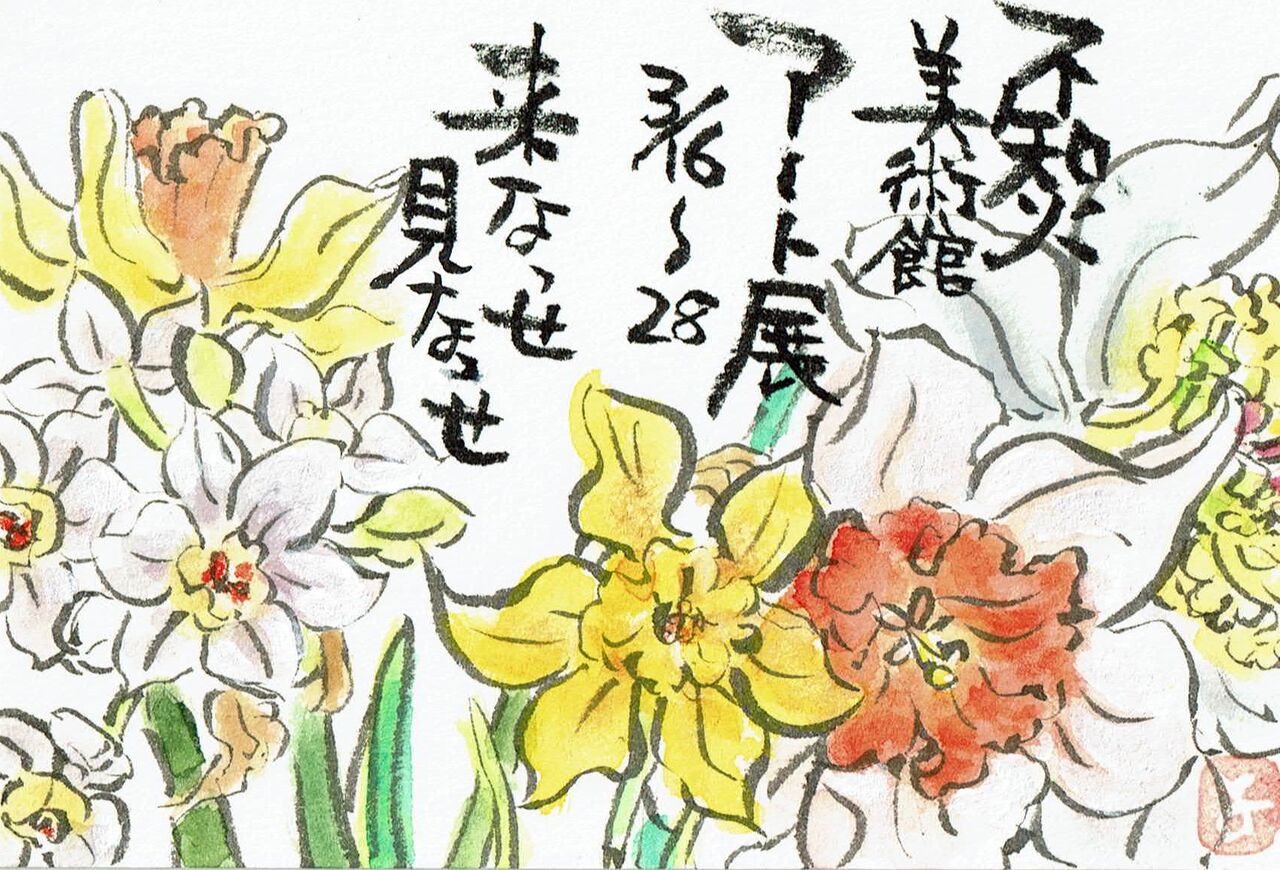 不知火
美術館
アート展
3/16〜28
来なっせ
見なっせ